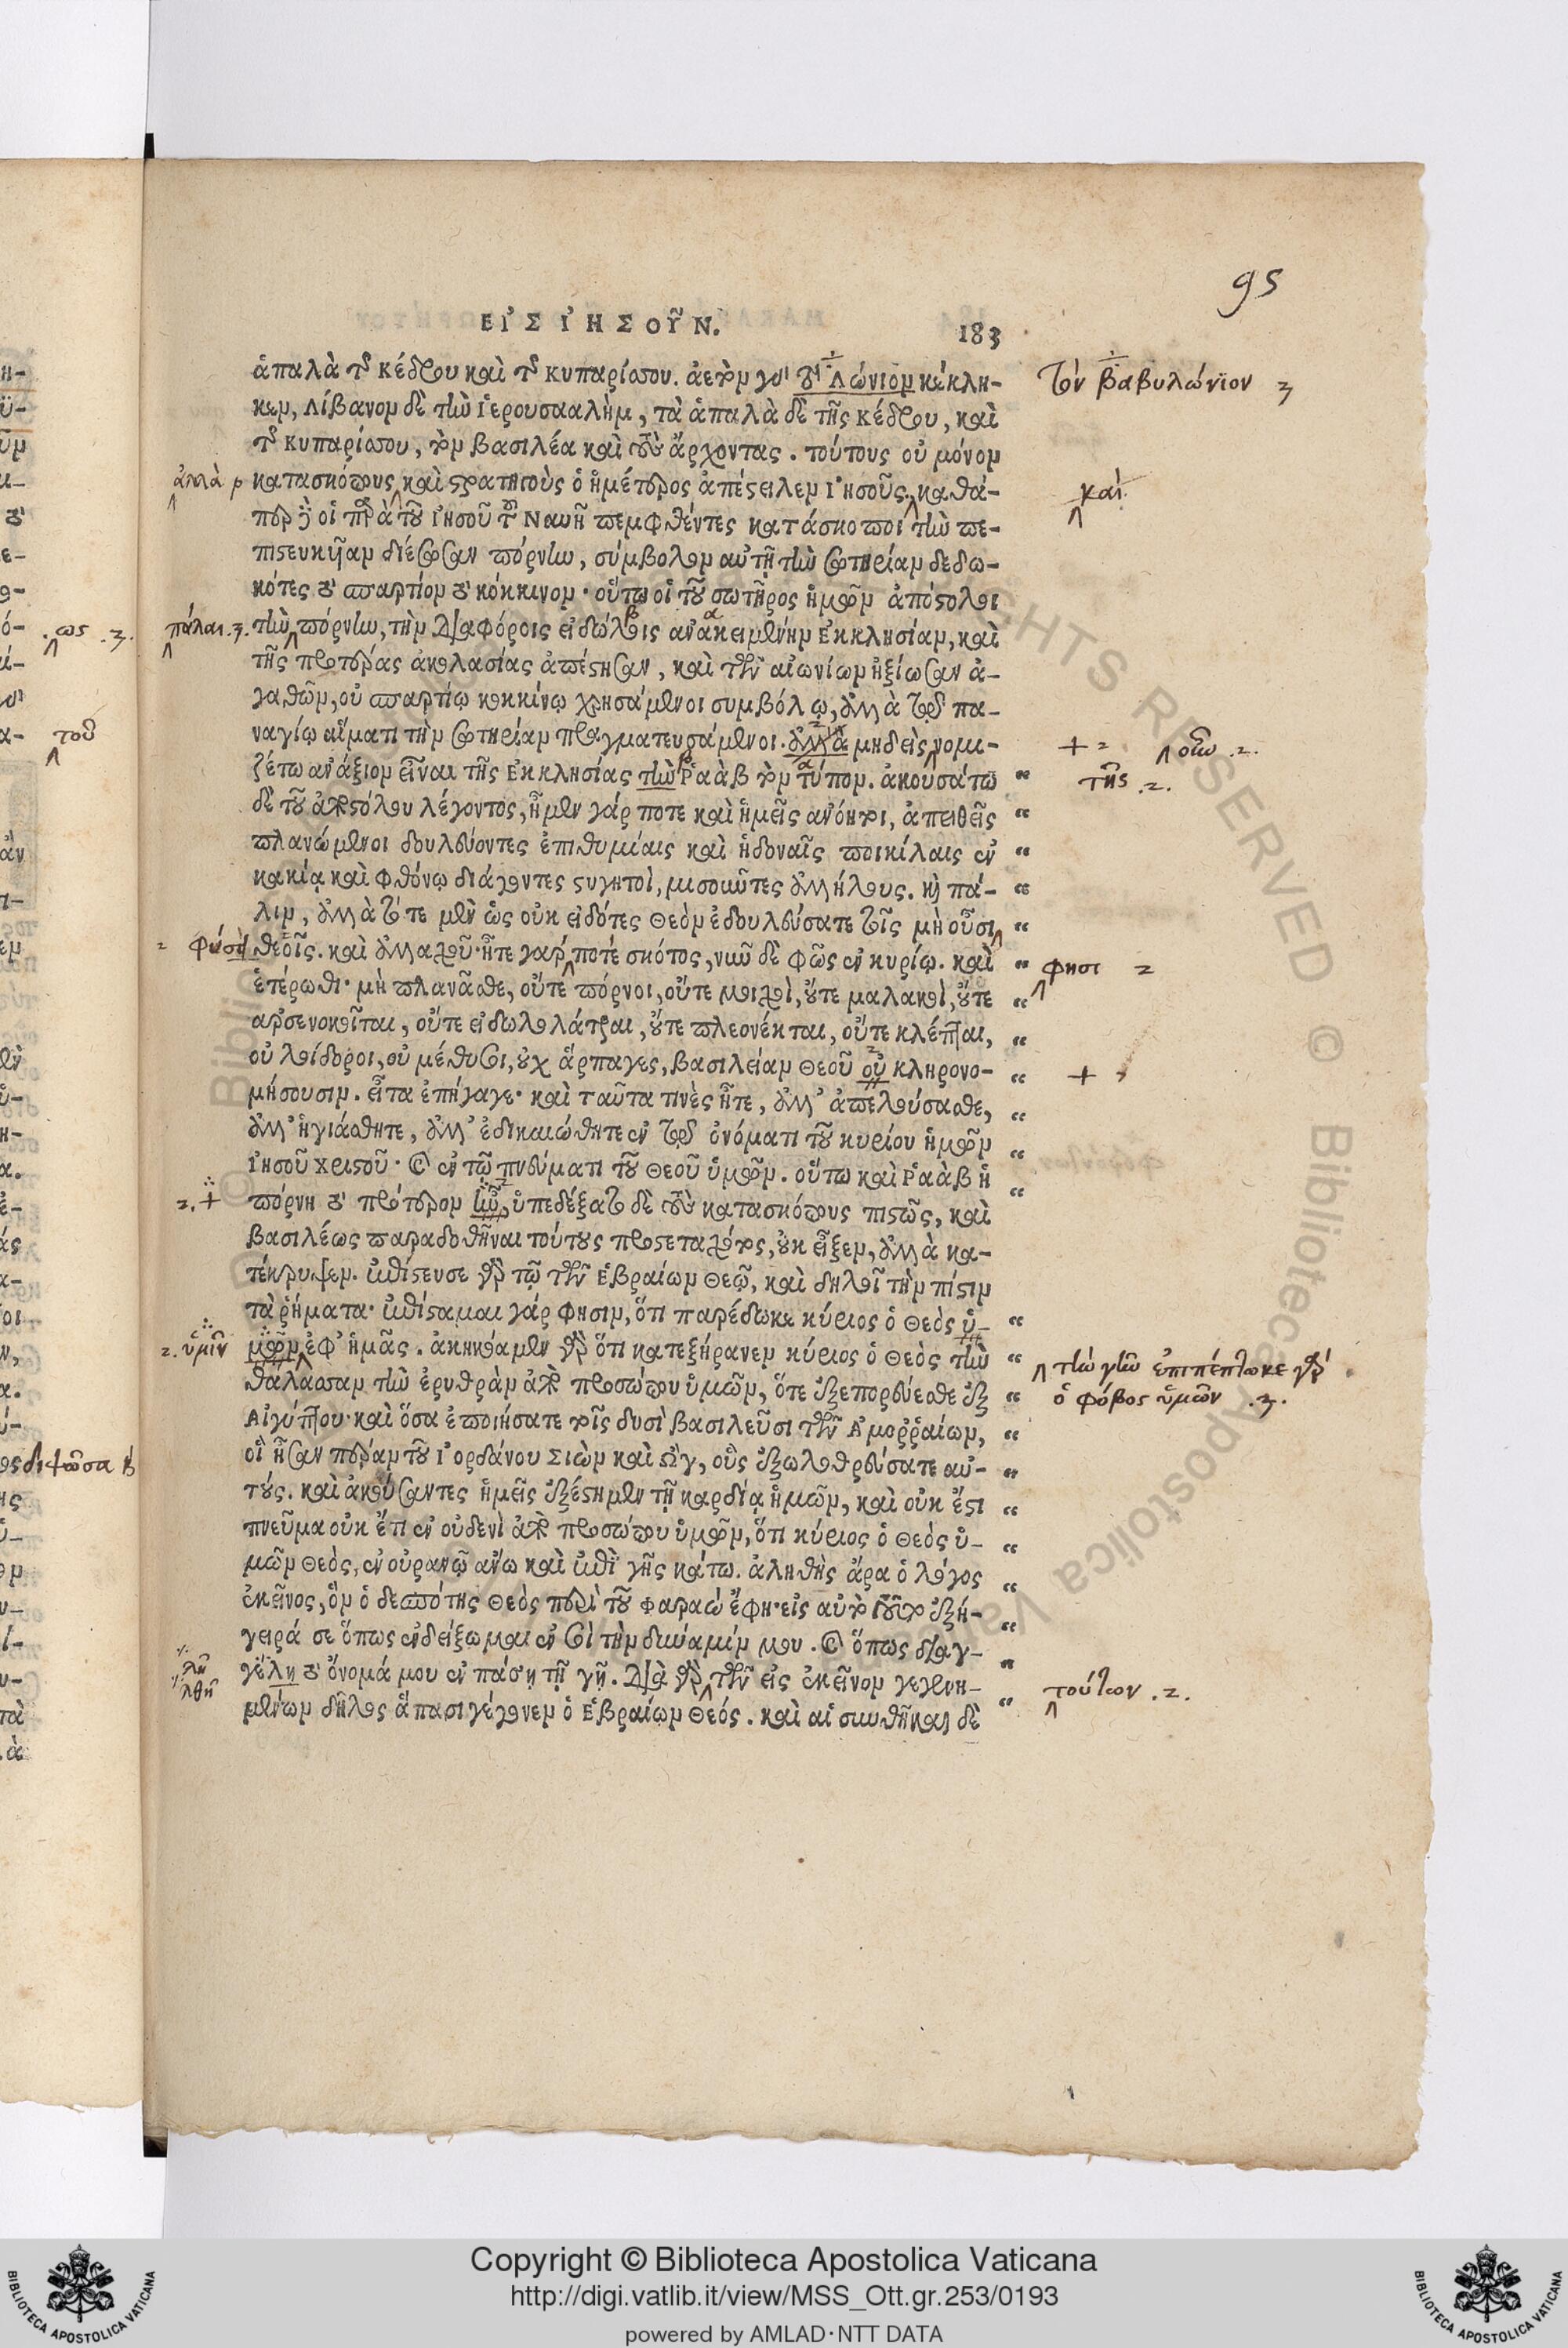 95
ΕΙ᾿Σ Ι᾿ΗΣΟΥ͂Ν.
183
ἁπαλὰ τῆς κέδρου καὶ τῆς κυπαρίσσου. ἀετὸν γὰρ τὸν Λώνιον κέκλη-
τὸν βαβυλώνιον
κεν, Λίβανον δὲ τὴν Ἱερουσααλὴμ, τὰ ἁπαλὰ δὲ τῆς κέδρου, καὶ
τῆς κυπαρίσσου, τὸν βασιλέα καὶ τοὺς ἄρχοντας. τούτους οὐ μόνον
ἀλλὰ
κατασκόπους καὶ στρατηγοὺς ὁ ἡμέτερος ἀπέστειλεν Ἰησοῦς, καθά-
καὶ
περ οἱ παρὰ τοῦ Ἰησοῦ τοῦ Ναυῆ πεμφθέντες κατάσκοποι τὴν πε-
πιστευκυῖαν διέσωσαν πόρνην, σύμβολον αὐτῇ τὴν σωτηρίαν δεδω-
κότες τὸ σπαρτίον τὸ κόκκινον· οὕτω οἱ τοῦ σωτῆρος ἡμῶν ἀπόστολοι
πάλαι
τὴν πόρνην, τὴν διαφόροις εἰδώλοις ἀνακειμένην Ἐκκλησίαν, καὶ
τῆς προτέρας ἀκολασίας ἀπέστησαν, καὶ τῶν αἰωνίων ἠξίωσαν ἀ-
γαθῶν, οὐ σπαρτίῳ κοκκίνῳ χρησάμενοι συμβόλῳ, ἀλλὰ τῷ πα-
ναγίῳ αἵματι τὴν σωτηρίαν πραγματευσάμενοι. ἀλλὰ μηδεὶς νομι-
οὖν
ζέτω ἀνάξιον εἶναι τῆς Ἐκκλησίας τὴν Ῥαὰβ τὸν τύπον. ἀκουσάτω
τῆς
δὲ τοῦ ἀποστόλου λέγοντος, ἦμεν γάρ ποτε καὶ ἡμεῖς ἀνόητοι, ἀπειθεῖς
πλανώμενοι δουλεύοντες ἐπιθυμίαις καὶ ἡδοναῖς ποικίλαις ἐν
κακίᾳ καὶ φθόνῳ διάγοντες στυγητοὶ, μισοῦντες ἀλλήλους. καὶ πά-
λιν, ἀλλὰ τότε μὲν ὡς οὐκ εἰδότες Θεὸν ἐδουλεύσατε τοῖς μὴ οὖσι
φύσει
θεοῖς. καὶ ἀλλαχοῦ· ἦτε γάρ ποτέ σκότος, νῦν δὲ φῶς ἐν κυρίῳ. καὶ
φησι
ἑτέρωθι· μὴ πλανᾶσθε, οὔτε πόρνοι, οὔτε μοιχοὶ, οὔτε μαλακοὶ, οὔτε
ἀρσενοκοῖται, οὔτε εἰδωλολάτραι, οὔτε πλεονέκται, οὔτε κλέπται,
οὐ λοίδοροι, οὐ μέθυσοι, οὐχ ἅρπαγες, βασιλείαν Θεοῦ οὐ κληρονο-
μήσουσιν. εἶτα ἐπήγαγε· καὶ ταῦτα τινὲς ἦτε, ἀλλ᾽ ἀπελούσασθε,
ἀλλ᾽ ἡγιάσθητε, ἀλλ᾽ ἐδικαιώθητε ἐν τῷ ὀνόματι τοῦ κυρίου ἡμῶν
Ἰησοῦ Χριστοῦ· καὶ ἐν τῷ πνεύματι τοῦ Θεοῦ ὑμῶν. οὕτω καὶ Ῥαὰβ ἡ
πόρνη τὸ πρότερον ἦν, ὑπεδέξατο δὲ τοὺς κατασκόπους πιστῶς, καὶ
βασιλέως παραδοθῆναι τούτους προστεταχότος, οὐκ εἶξεν, ἀλλὰ κα-
τέκρυψεν. ἐπίστευσε γὰρ τῷ τῶν Ἑβραίων Θεῷ, καὶ δηλοῖ τὴν πίστιν
τὰ ῥήματα· ἐπίσταμαι γάρ φησιν, ὅτι παρέδωκε κύριος ὁ Θεὸς ὑ-
ὑμῖν
μῶν ἐφ᾽ ἡμᾶς. ἀκηκόαμεν γὰρ ὅτι κατεξήρανεν κύριος ὁ Θεὸς τὴν
τὴν γῆν ἐπιπέπτωκε γὰρ
θάλασσαν τὴν ἐρυθρὰν ἀπὸ προσώπου ὑμῶν, ὅτε ἐξεπορεύεσθε ἐξ
ὁ φόβος ὑμῶν
Αἰγύπτου· καὶ ὅσα ἐποιήσατε τοῖς δυσὶ βασιλεῦσι τῶν Ἀμοῤῥαίων,
οἳ ἦσαν πέραν τοῦ Ἰορδάνου Σιὼν καὶ Ὢγ, οὓς ἐξωλοθρεύσατε αὐ-
τούς. καὶ ἀκούσαντες ἡμεῖς ἐξέστημεν τῇ καρδίᾳ ἡμῶν, καὶ οὐκ ἔστι
πνεῦμα οὐκ ἔτι ἐν οὐδενὶ ἀπὸ προσώπου ὑμῶν, ὅτι κύριος ὁ Θεὸς ὑ-
μῶν Θεὸς, ἐν οὐρανῷ ἄνω καὶ ἐπὶ γῆς κάτω. ἀληθὴς ἄρα ὁ λόγος
ἐκεῖνος, ὃν ὁ δεσπότης Θεὸς περὶ τοῦ Φαραώ ἔφη· εἰς αὐτὸ τοῦτο ἐξή-
γειρά σε ὅπως ἐνδείξωμαι ἐν σοὶ τὴν δύναμίν μου. καὶ ὅπως διαγ-
γέλη τὸ ὄνομά μου ἐν πάσῃ τῇ γῇ. διὰ γὰρ τῶν εἰς ἐκεῖνον γεγενη-
τούτων
μένων δῆλος ἅπασι γέγονεν ὁ Ἑβραίων Θεός. καὶ αἱ συνθῆκαι δὲ
Copyright © Biblioteca Apostolica Vaticana
http://digi.vatlib.it/view/MSS_Ott.gr.253/0193
powered by AMLAD·NTT DATA